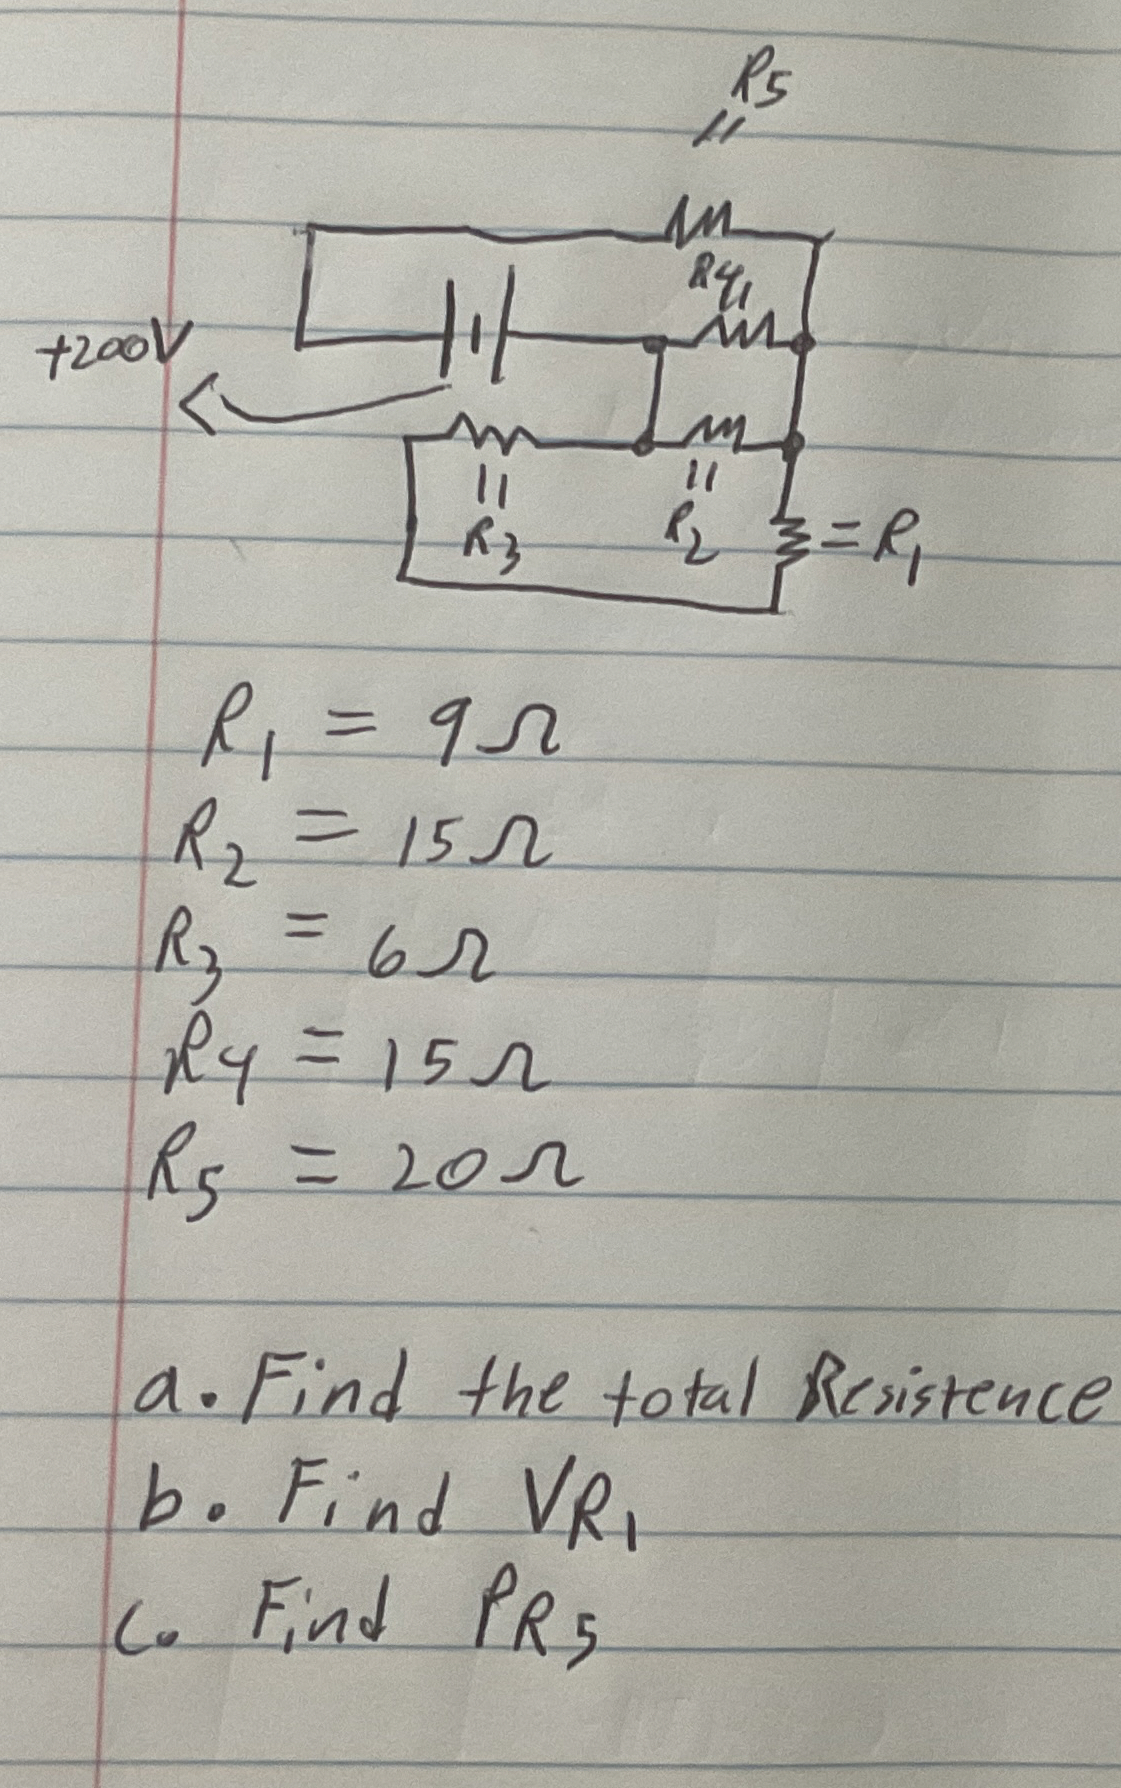 R5
=
R4
=
+200V
=
R3
=
R2
= R1
R1 = 9Ω
R2 = 15Ω
R3 = 6Ω
R4 = 15Ω
R5 = 20Ω
a. Find the total Resistence
b. Find VR1
c. Find PR5